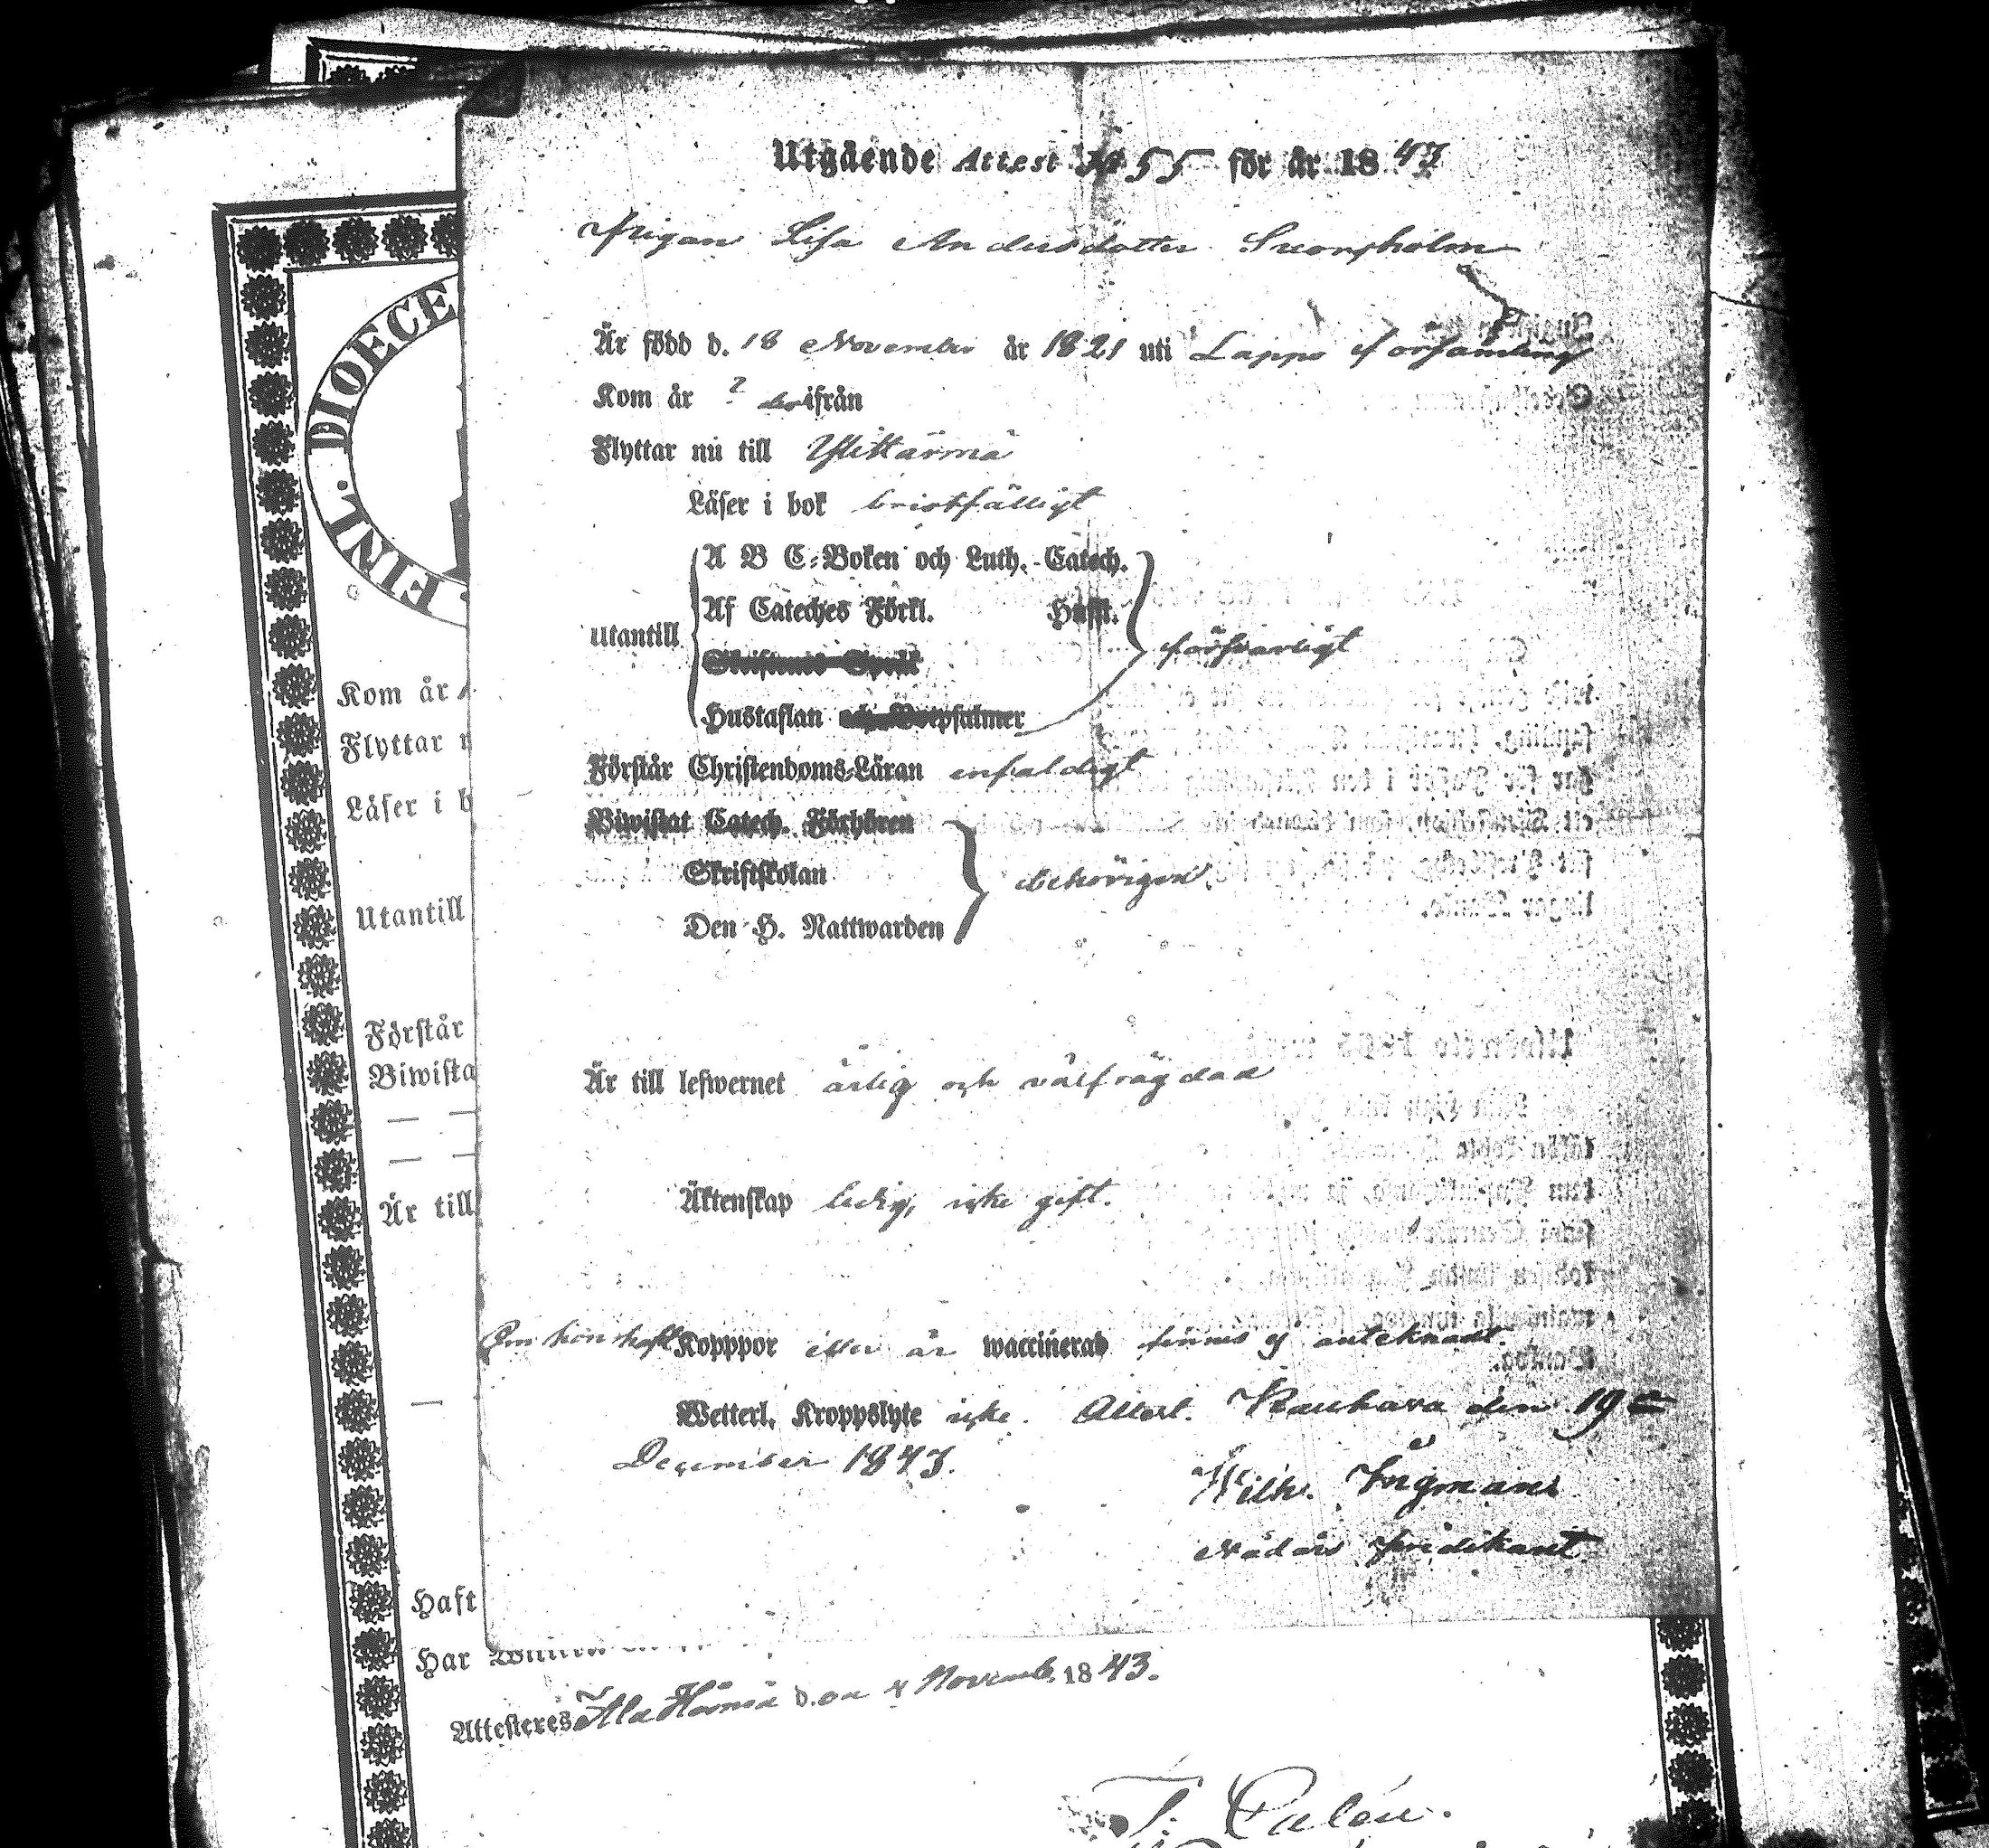 Utgående Attest № 55 för år 1843
Pigan Lisa Andersdotter
Är född d. 18 November år 1821 uti Lappo församling
Kom år ? ifrån
Flyttar nu till Ylihärmä
Läser i bok bristfälligt
Utantill
A B C-Boken och Luth. Catech.
Af Cateches Förkl. Huſfl.
Skriftenes Språk
Hustaflan och Botpsalmer
försvarligt
Förstår Christendoms-Läran enfaldigt
Biwistat Catech. Förhören
Skriftskolan
Den H. Nattwarden
behörigen
Är till lefwernet ärlig och välfrägdad
Äktenskap ledig, icke gift.
Om hon haft Kopppor eller är waccinerad finnes ej antecknadt.
Wetterl. Kroppslyte icke. Attest. Kauhava den 19
December 1843.
Wilh. Ingman
Nådårs Predikant
DIOECE
FINL.
Kom år
Flyttar
Läser i b
Utantill
Förstår
Biwista
Är till
Haft
Har
Attesteres Ala Härmä d. 4 Novemb. 1843.